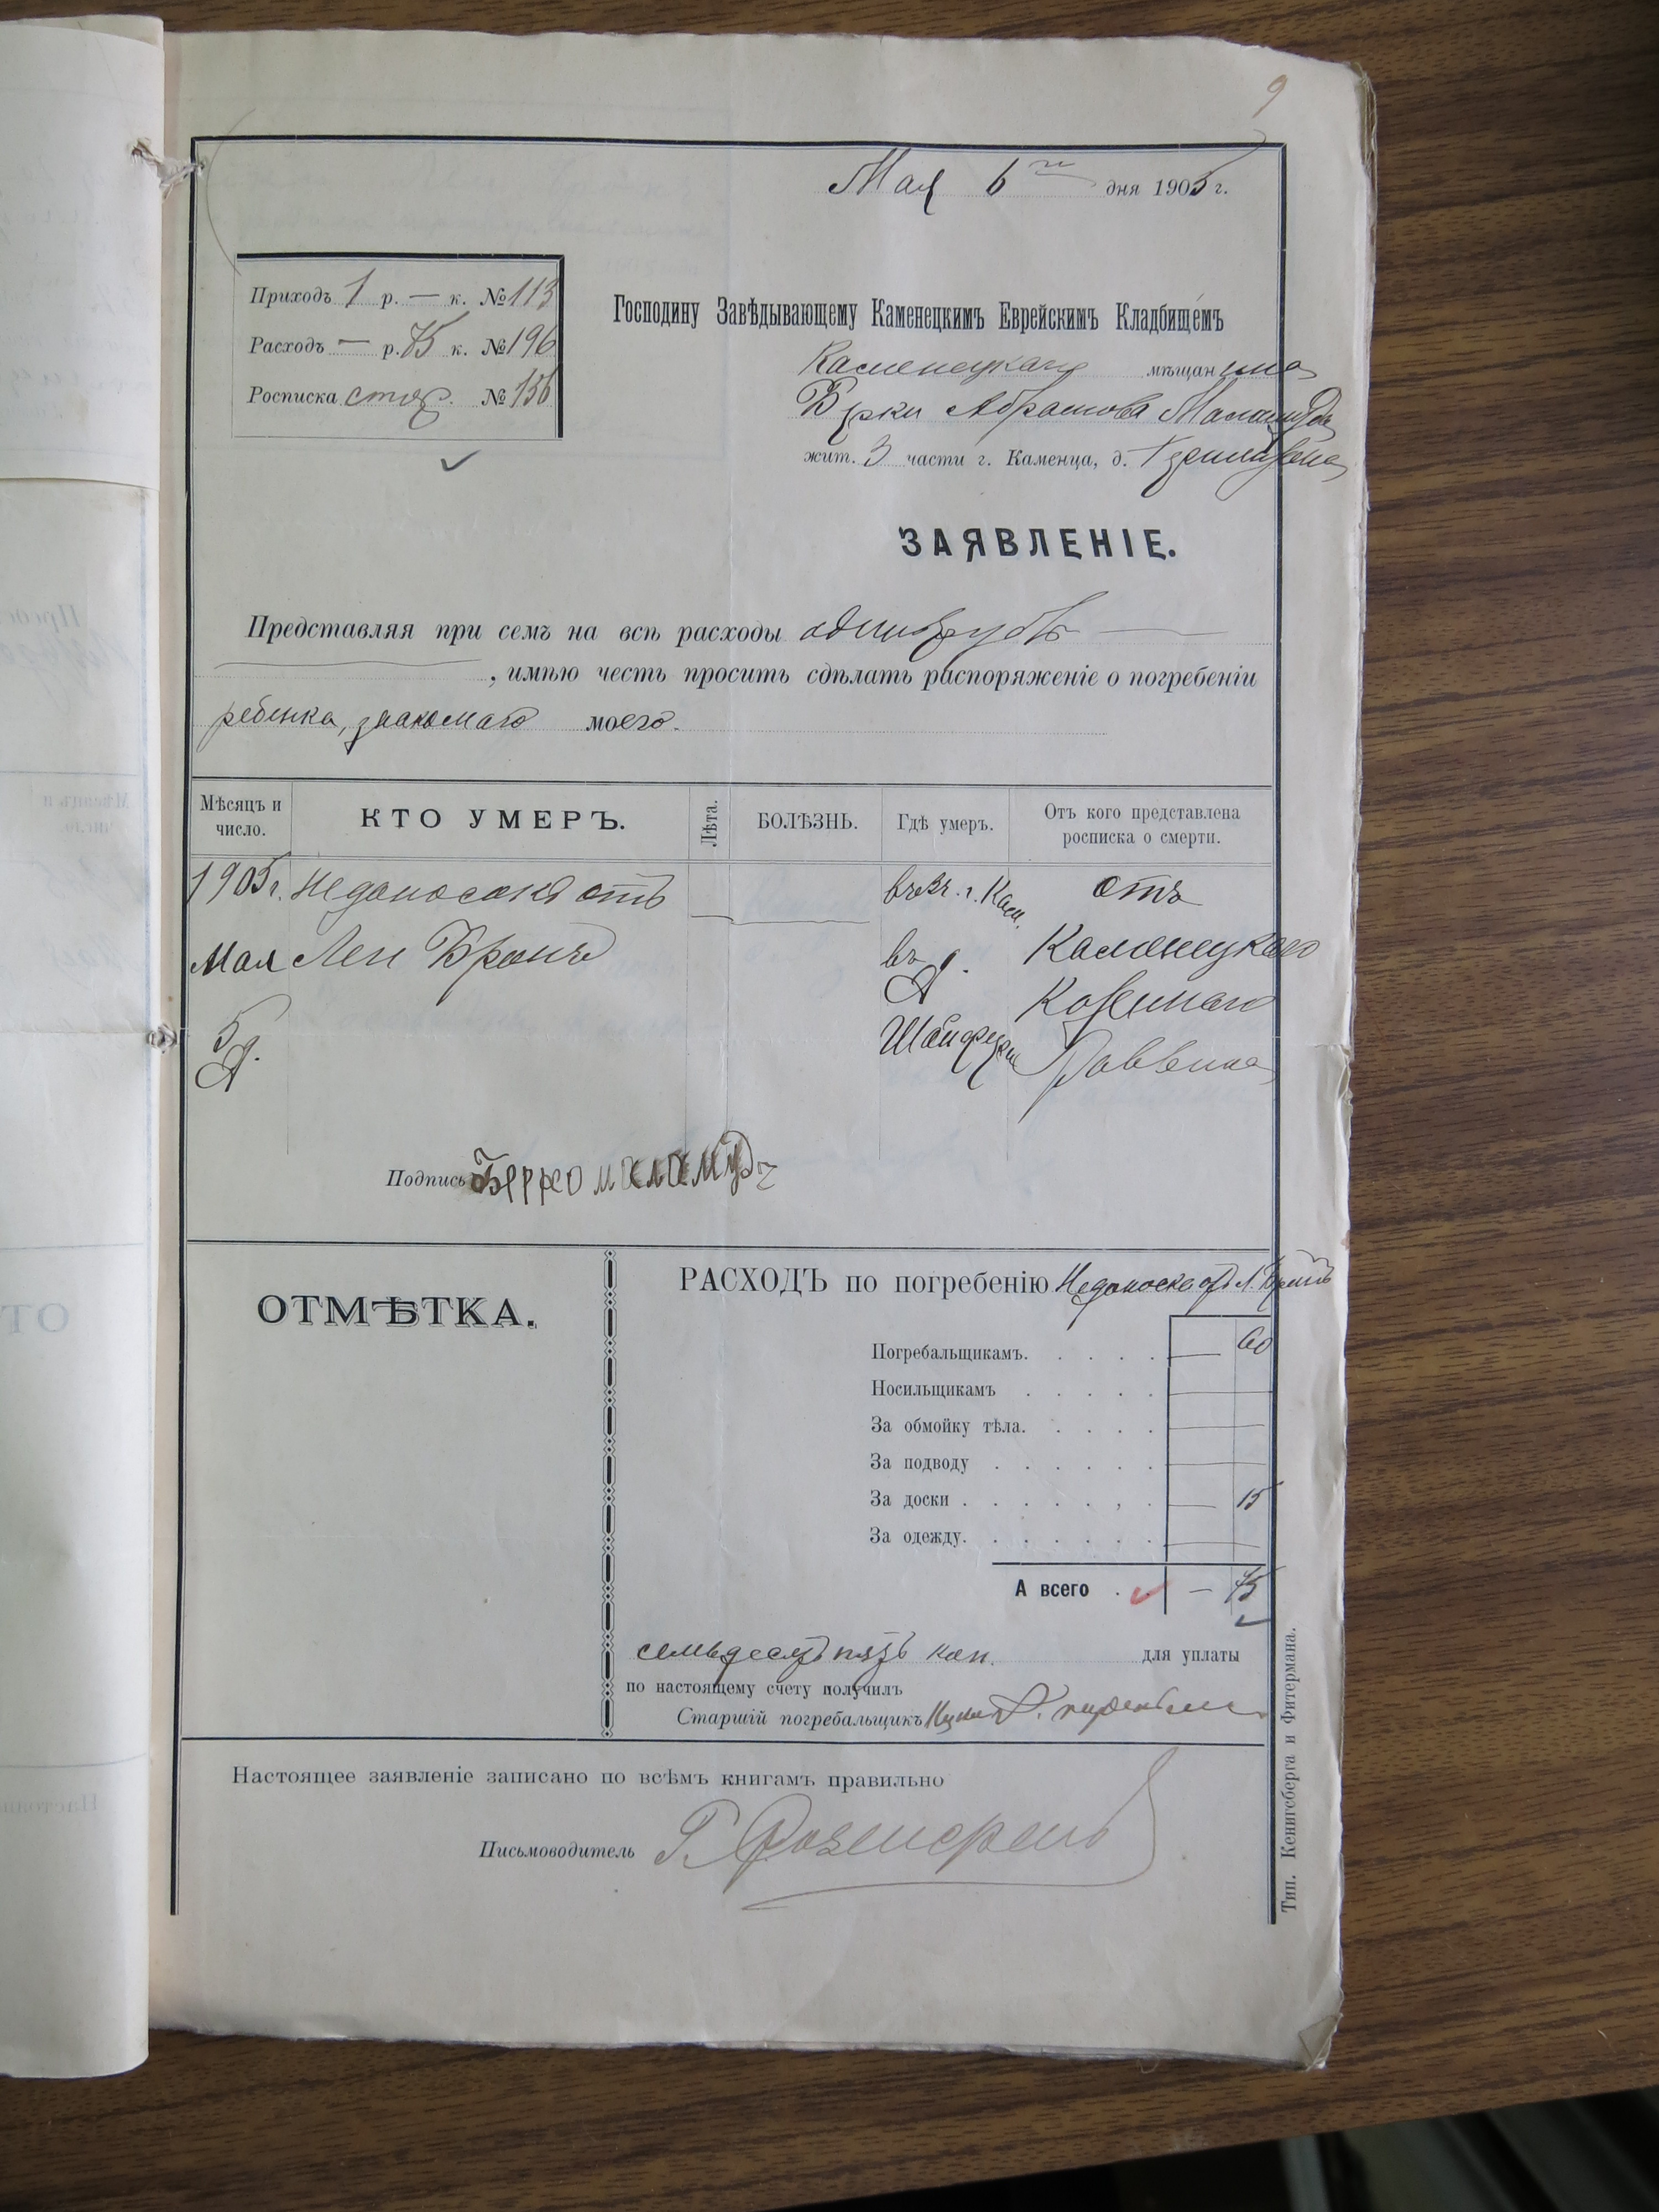 9
Мая 6го дня 1905 г.
Приходъ 1 р. — к. № 113
Расходъ — р. 75 к. № 196
Росписка стар. № 156
Господину Завѣдывающему Каменецкимъ Еврейскимъ Кладбищемъ
Каменецкаго мѣщанина
Берки Абрамова Маламуда
жит. 3 части г. Каменца, д.
ЗАЯВЛЕНІЕ.
Представляя при семъ на всѣ расходы одинъ рубль —
, имѣю честь просить сдѣлать распоряженіе о погребеніи
ребенка, знакомаго моего.
Мѣсяцъ и число.
КТО УМЕРЪ.
Лѣта.
БОЛѢЗНЬ.
Гдѣ умеръ.
Отъ кого представлена росписка о смерти.
1905 г. Недоносокъ отъ — въ г. Кам. отъ
Мая Леи Бронъ въ д. Каменецкаго
5 д. Казеннаго
Раввина
Подпись Берко Маламудъ
ОТМѢТКА.
РАСХОДЪ по погребенію Недоноска отъ Л. Бронъ
Погребальщикамъ. . . . . — 60
Носильщикамъ . . . . . —
За обмойку тѣла. . . . . —
За подводу . . . . . . —
За доски . . . . . , . — 15
За одежду. . . . . . . —
А всего . — 75
семьдесятъ пять коп. для уплаты
по настоящему счету получилъ
Старшій погребальщикъ
Настоящее заявленіе записано по всѣмъ книгамъ правильно
Письмоводитель Г. Розенгрень
Тип. Кенигсберга и Фитермана.